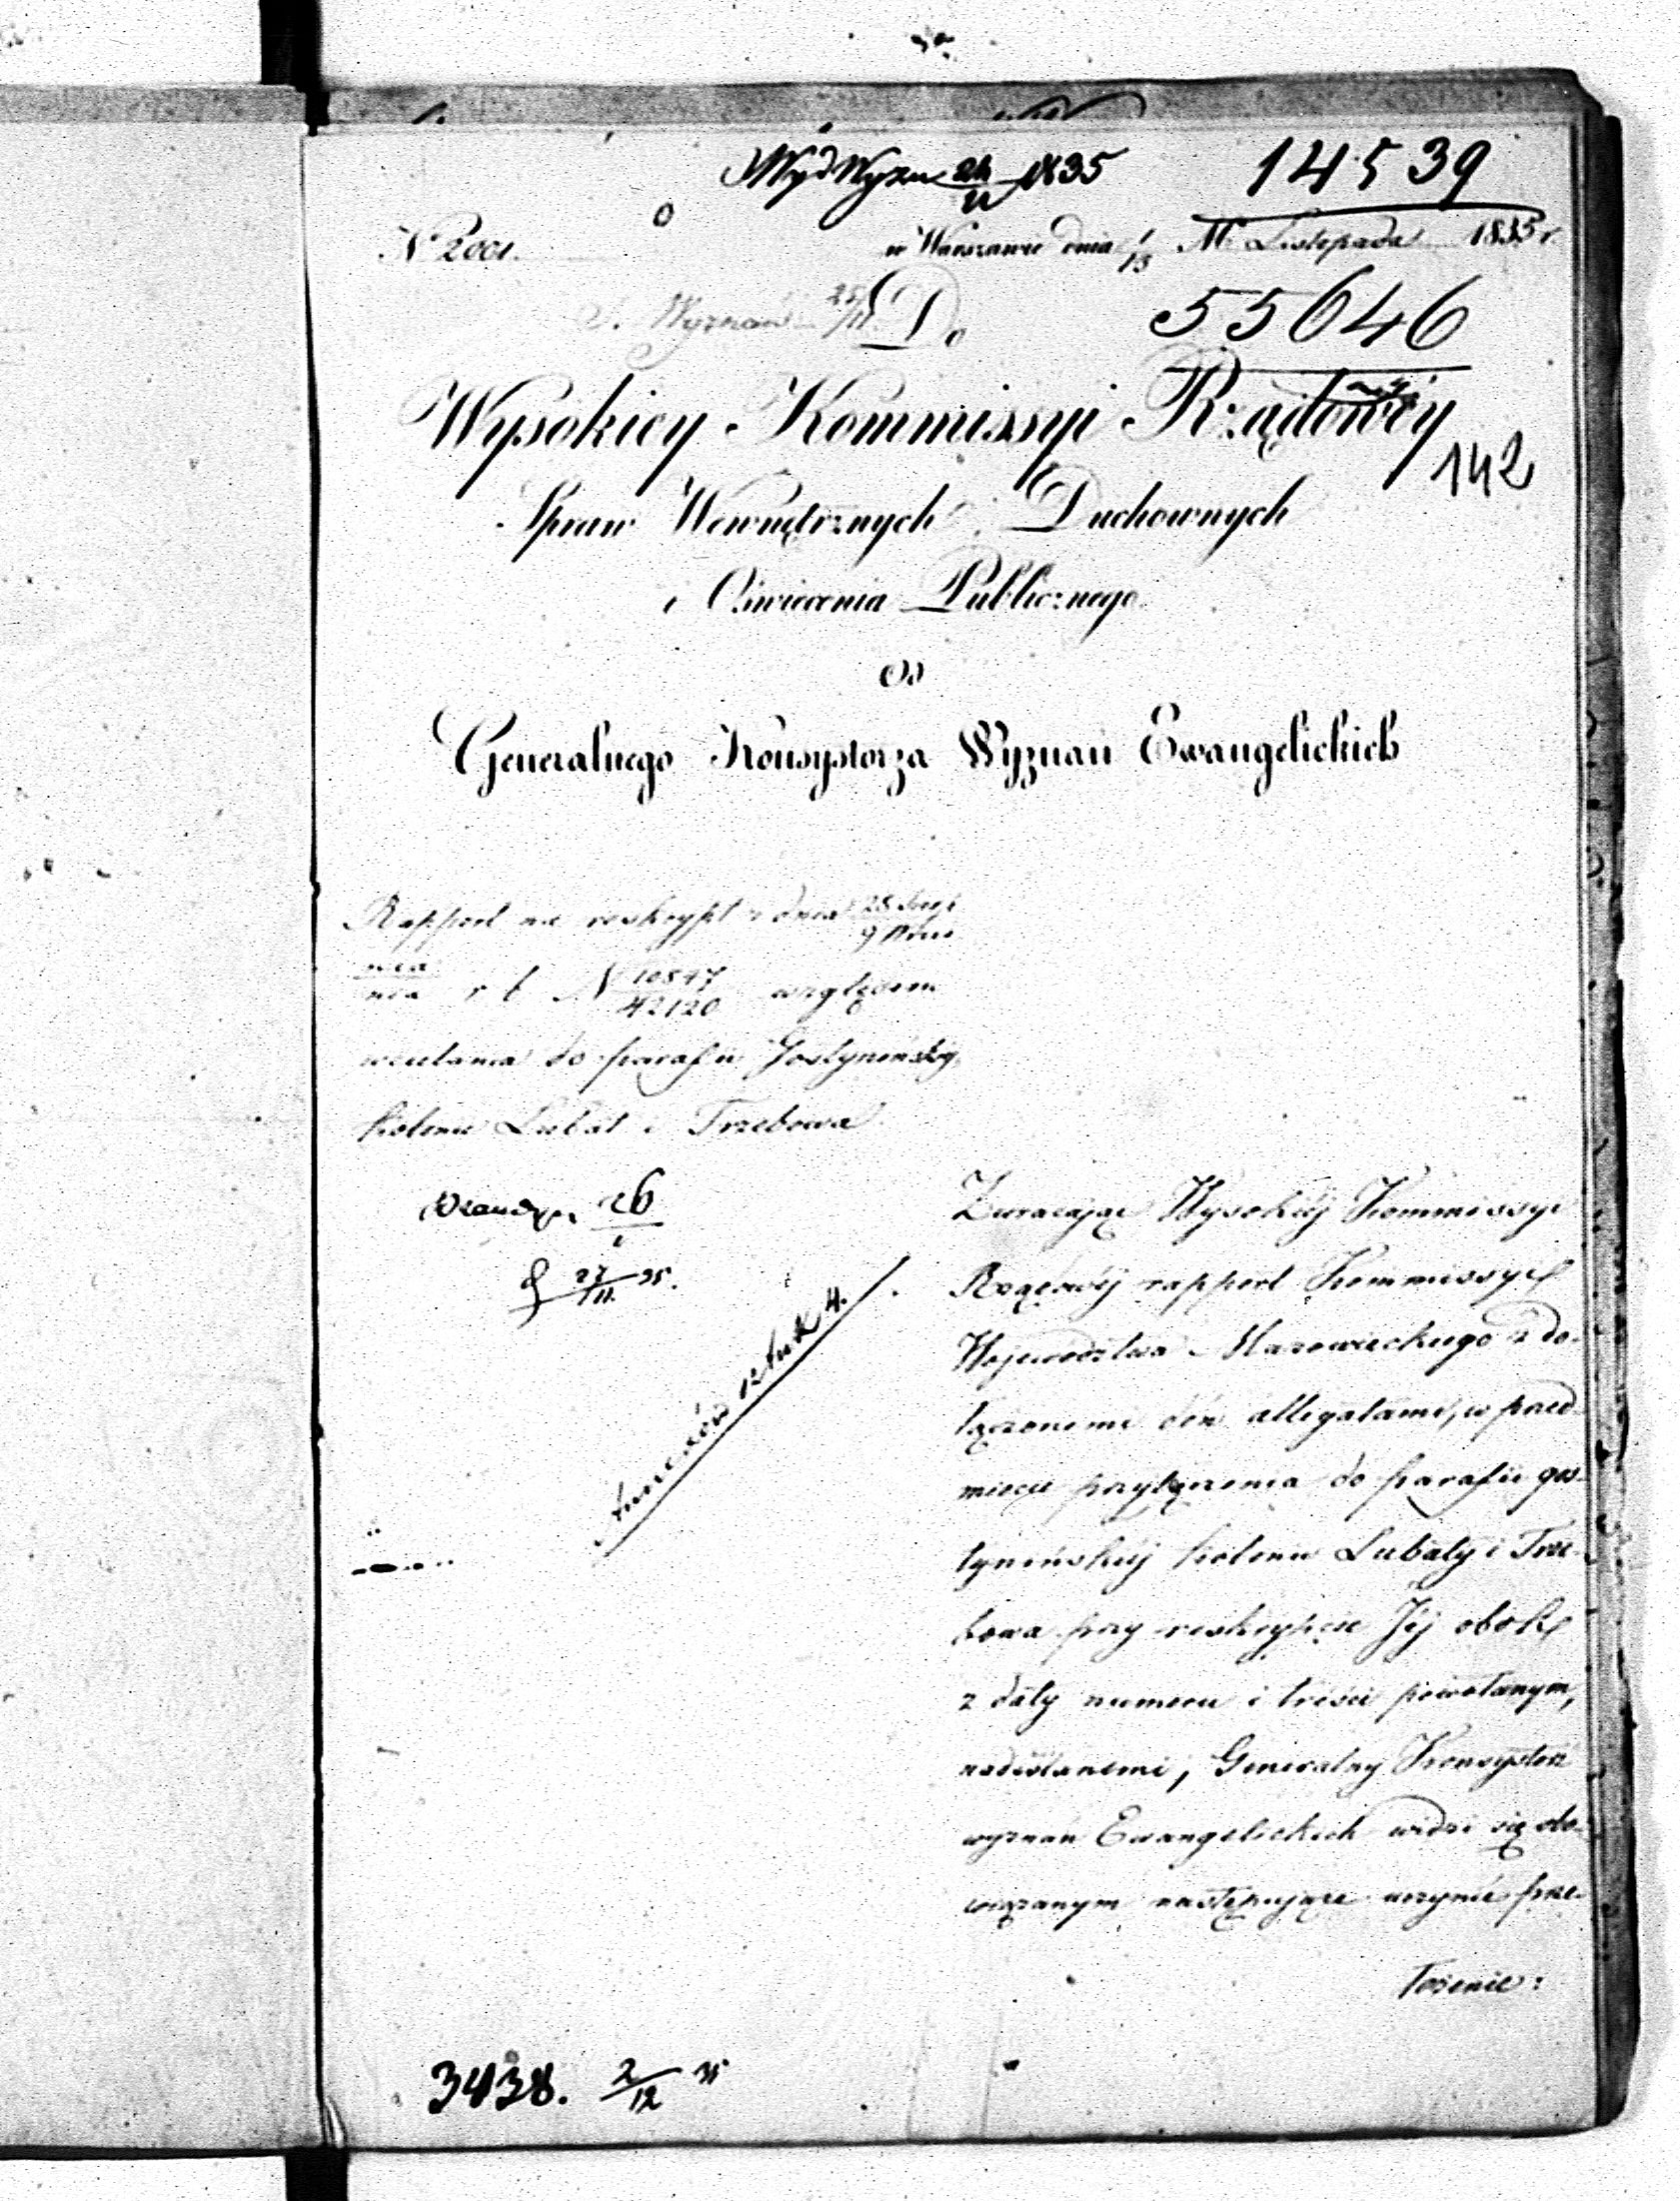 WydWyzn 24/11 1835
14539
N 2001.
w Warszawie dnia 1/13 M. Listopada 1835 r.
Wyznań 25/11
Do
55646
Wysokiey Kommissyi Rządowéy
142
Spraw Wewnętrznych Duchownych
i Oświecenia Publicznego
Od
Generalnego Konsystorza Wyznań Ewangelickich
Rapport na reskrypt z dnia 28 Sierp/9 Wrze
nia/nia r. b. N 10847/42120 względem
wcielenia do parafii Gostynińskiéj
kolonii Lubat i Trzebowa
26
27/11 35.
Annexów sztuk 4.
Zwracając Wysokiéj Kommissyi
Rządowéj rapport Kommissyi
Województwa Mazowieckiego z do-
łączonemi doń allegatami, w przed-
miocie przyłączenia do parafii gos-
tynińskiéj kolonii Lubaty i Trze-
bowa przy reskrypcie Jéj obok
z daty numeru i treści powołanym,
nadesłanemi, Generalny Konsystorz
wyznań Ewangelickich widzi się obo-
wiązanym następujące uczynić prze-
łożenie:
3438. 2/12 35